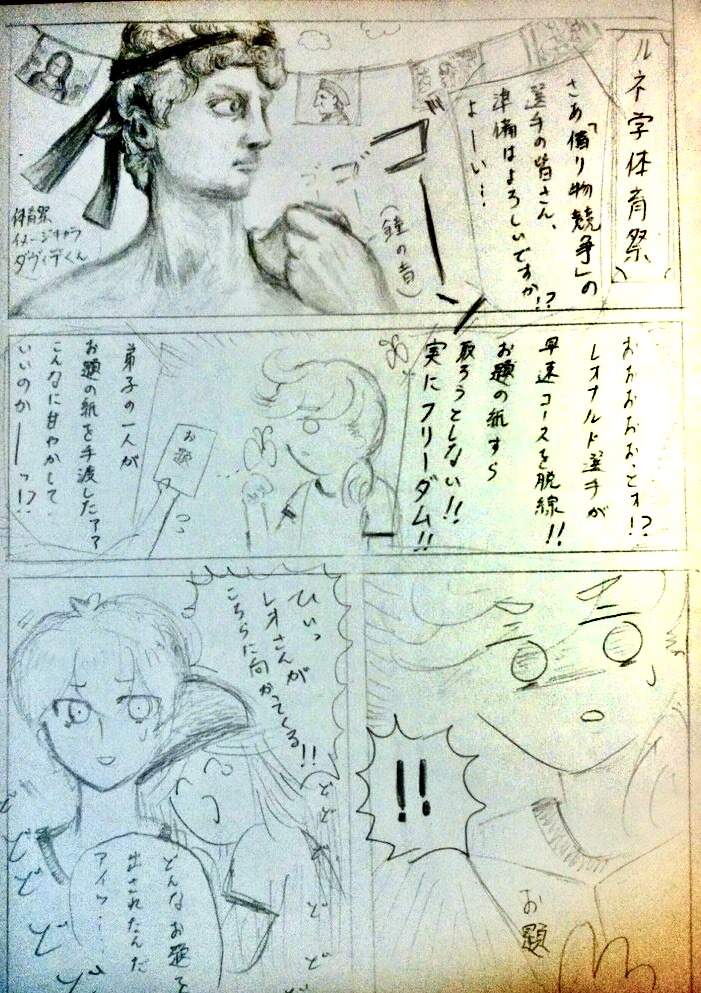 ルネ学体育祭
さあ「借り物競争」の
選手の皆さん、
準備はよろしいですか!?
よーい…
ゴーン
(鐘の音)
体育祭
イメージキャラ
ダヴィデくん
おおおおおっとォ!?
レオナルド選手が
早速コースを脱線!!
お題の紙すら
取ろうとしない!!
実にフリーダム!!
お題
弟子の一人が
お題の紙を手渡したァァ
こんなに甘やかして
いいのかーーっ!?
!!
お題
ひぃっ
レオさんが
こちらに向かってくる!!
どんなお題を
出されたんだ
アイツ…
どどどど
どどどど